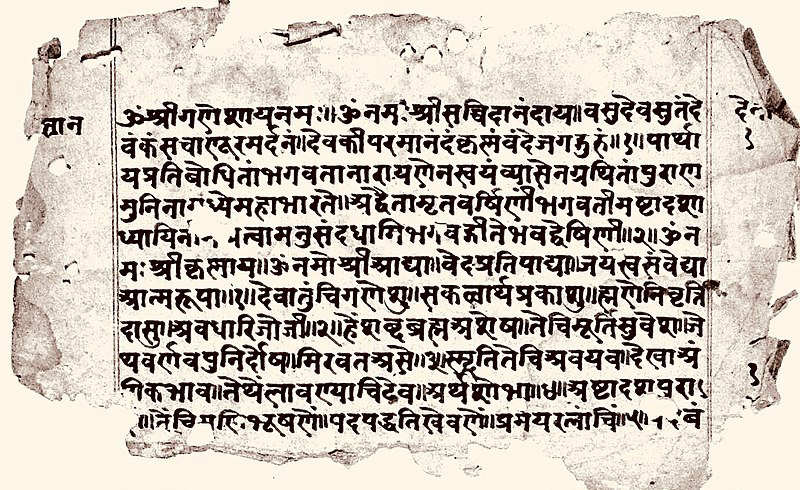 ॐ श्रीगणेशायनमः॥ॐनमः श्रीसच्चिदानंदाय॥वसुदेवसुतंदे
ज्ञान
वंकंसचाणूरमर्दनं॥देवकीपरमानंदंकृष्णंवंदेजगद्गुरुं॥१॥पार्था
यप्रतिबोधितांभगवतानारायणेनस्वयंव्यासेनग्रथितांपुराण
मुनिनामध्येमहाभारते॥अद्वैतामृतवर्षिणींभगवतीमष्टादशा
ध्यायिनीं त्वामनुसंदधामिभगवद्गीतेभवद्वेषिणीं॥२॥ॐन
मः श्रीकृष्णाय॥ॐनमोश्रीआद्या॥वेदप्रतिपाद्या॥जयस्वसंवेद्या
आत्मरूपा॥१॥देवातुंचिगणेशु॥सकळार्थप्रकाशु॥ह्मणेनिवृत्ति
दासु॥अवधारिजोजी॥२॥हेंशब्दब्रह्मअशेष॥तेचिमूर्तिसुवेश॥जे
थवर्णवपुनिर्दोष॥मिरवतअसे॥३॥स्मृतितेचिअवयव॥देखाअं
गिकभाव॥तेथेलावण्याचिठेव॥अर्थशोभा॥४॥अष्टादशपुरा
पदपद्धतिखेवणें॥प्रमेयरत्नांचि॥५॥